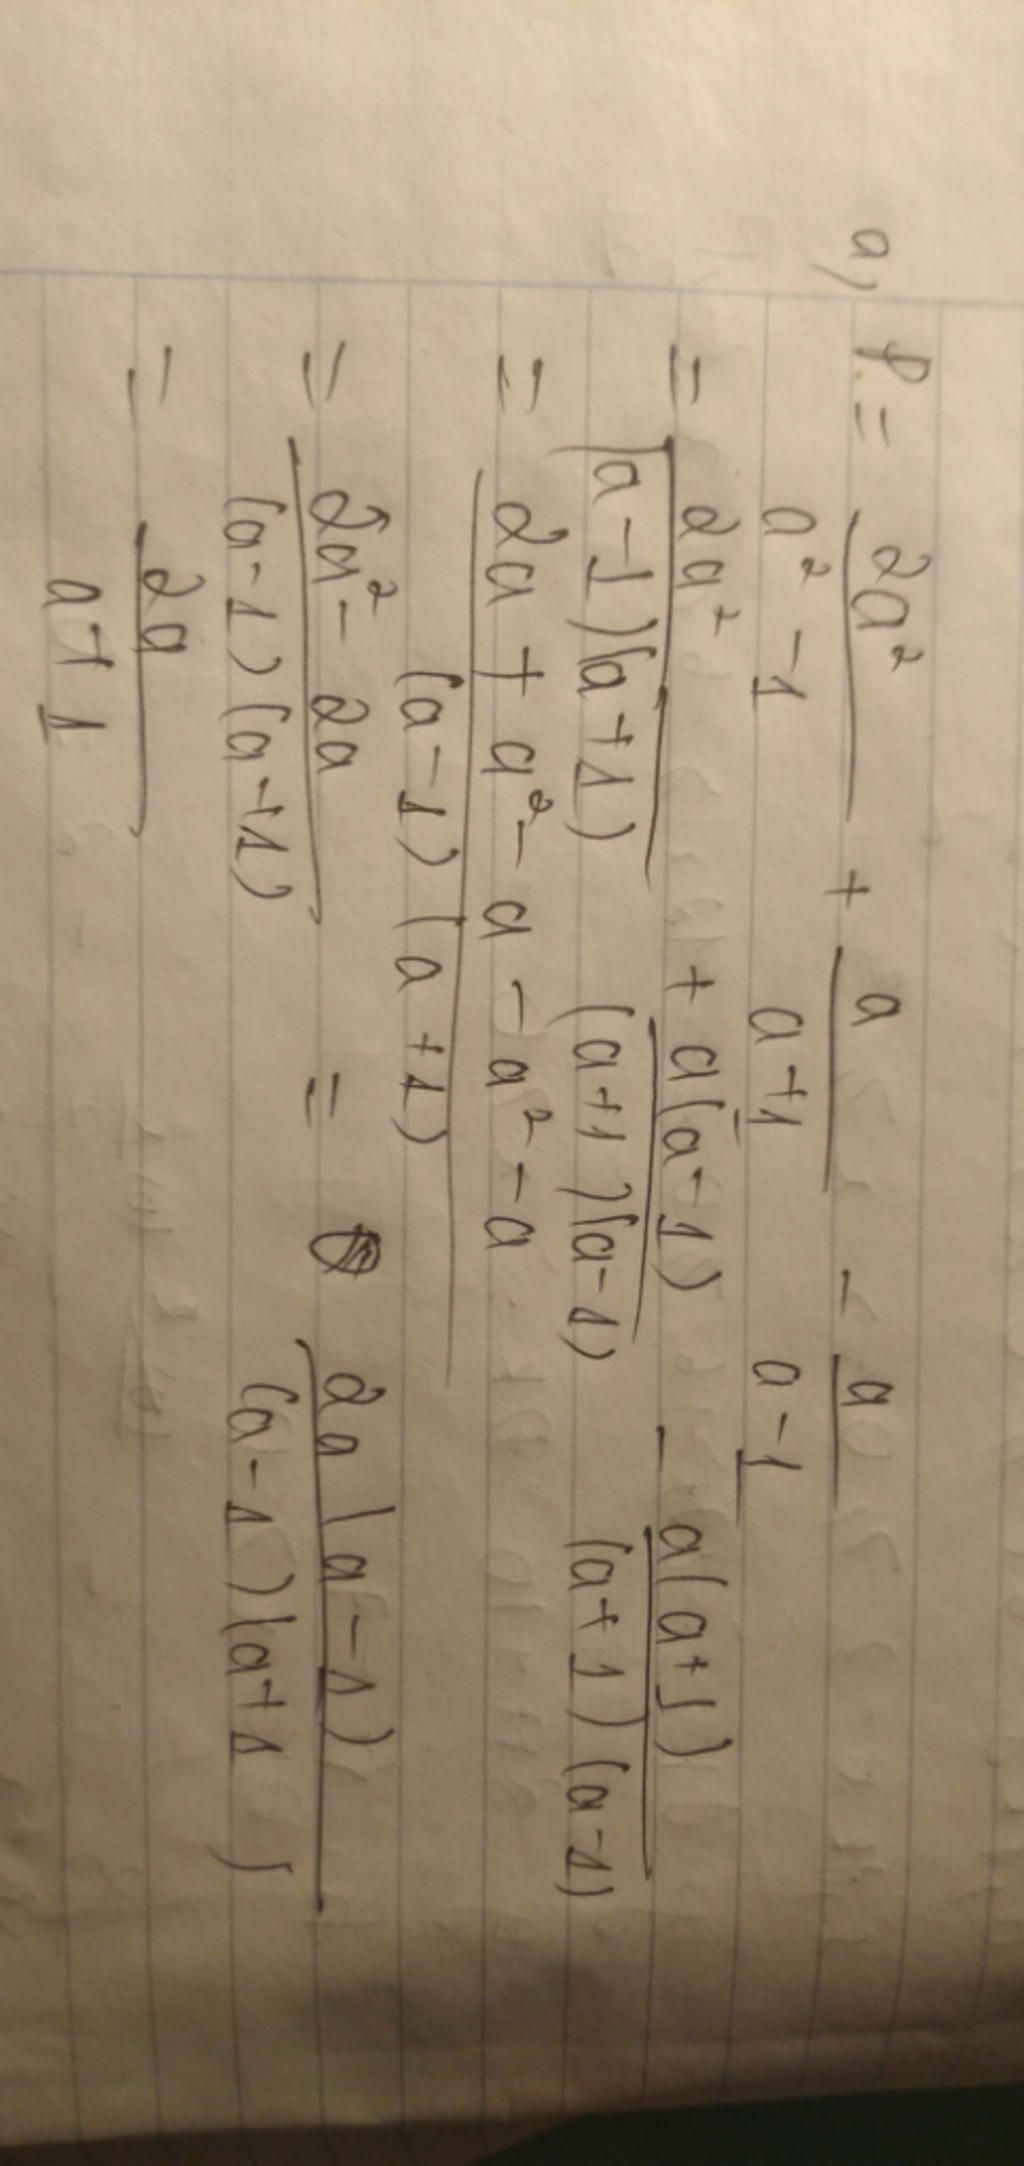 a, P = 2a² / a² - 1 + a / a + 1 - a / a - 1
= 2a² / (a - 1)(a + 1) + a(a - 1) / (a + 1)(a - 1) - a(a + 1) / (a + 1)(a - 1)
= 2a + a² - a - a² - a / (a - 1)(a + 1)
= 2a² - 2a / (a - 1)(a + 1) = 2a(a - 1) / (a - 1)(a + 1)
= 2a / a + 1